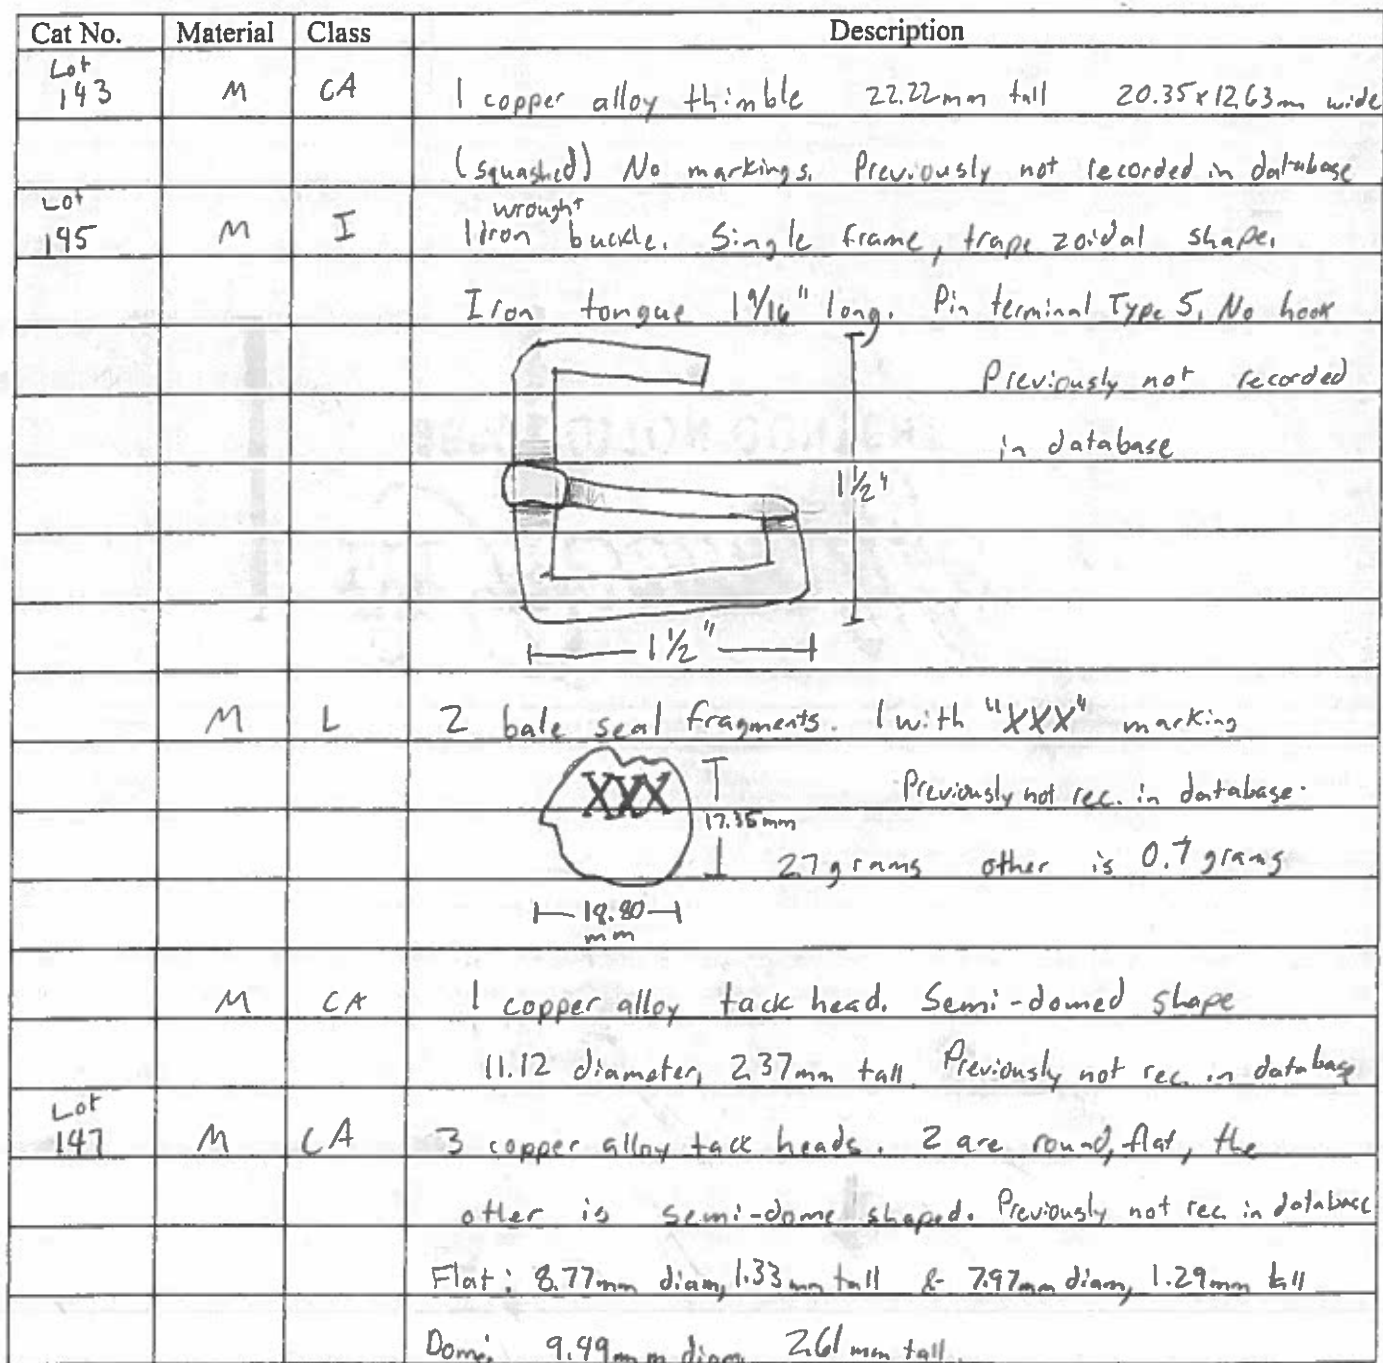 Cat No. Material Class Description
Lot
143 M CA 1 copper alloy thimble 22.22mm tall 20.35x12.63mm wide
(squashed) No markings. Previously not recorded in database
Lot
wrought
145 M I 1 iron buckle. Single frame, trapezoidal shape.
Iron tongue 1 9/16" long. Pin terminal Type 5, No hook
Previously not recorded
in database
1 1/2"
1 1/2"
M L 2 bale seal fragments. 1 with "XXX" marking
XXX Previously not rec. in database.
17.35mm
2.7 grams other is 0.7 grams
18.80
mm
M CA 1 copper alloy tack head. Semi-domed shape
11.12 diameter, 2.37mm tall. Previously not rec. in database
Lot
147 M CA 3 copper alloy tack heads. 2 are round, flat, the
other is semi-dome shaped. Previously not rec. in database
Flat: 8.77mm diam, 1.33mm tall & 7.97mm diam, 1.29mm tall
Dome: 9.49mm diam. 2.61mm tall.